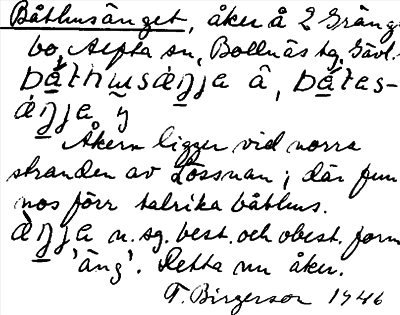 Båthusänget, åker å 2 Gräng-
bo, Alfta sn, Bollnäs tg, Gävl.
bå̀thusæŋja â, bå̀tas-
æŋja y
Åkern ligger vid norra
stranden av Lössnan; där fun-
nos förr talrika båthus.
æ̀ŋja n. sg. best. och obest. form
'äng'. Detta nu åker.
T. Birgerson 1946